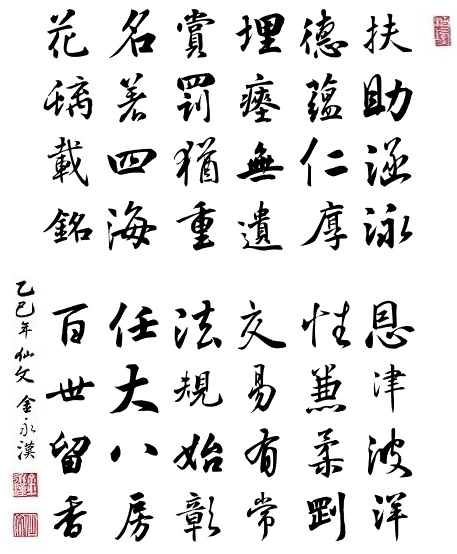 扶助涵泳 恩津波洋
德蘊仁厚 性兼柔剛
埋瘞無遺 交易有常
賞罰猶重 法規始彰
名著四海 任大八房
花載銘 百世留香
乙巳年 仙文 金永漠